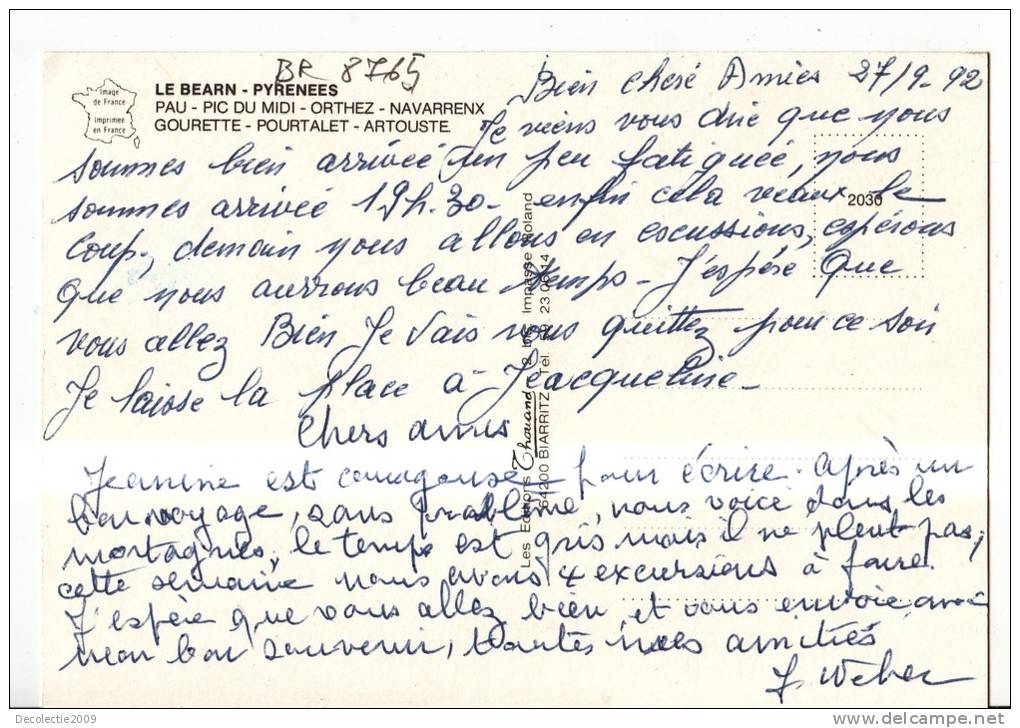 BR 8765
Image
de France
imprimee
en France
LE BEARN - PYRENEES
PAU - PIC DU MIDI - ORTHEZ - NAVARRENX
GOURETTE - POURTALET - ARTOUSTE.
Bien cheré Amies 27/9-92
Je viens vous dire que nous
sommes bien arriveé un peu fatigueé, nous
sommes arriveé 19h.30 - enfin cela veaux le
coup, demain nous allons en escussions, espérons
que nous aurrons beau temps - J'espère que
vous allez Bien Je vais vous quittez pour ce soir
Je laisse la place a Jeacqueline -
Chers amis
Jeannine est couragouse pour écrire. après un
bon voyage, sans problème, nous voice dans les
montagnes, le temps est gris mais il ne pleut pas,
cette semaine nous avons 4 excursions à faire.
J'espère que vous allez bien, et vous envoie avec
mon bon souvenir, toutes nos amitiés
J. Weber
2030
Les Editions Thouand 2 bis Impasse Roland
64200 BIARRITZ Tél. 59 23 06 14
Decolectie2009
www.delcampe.net